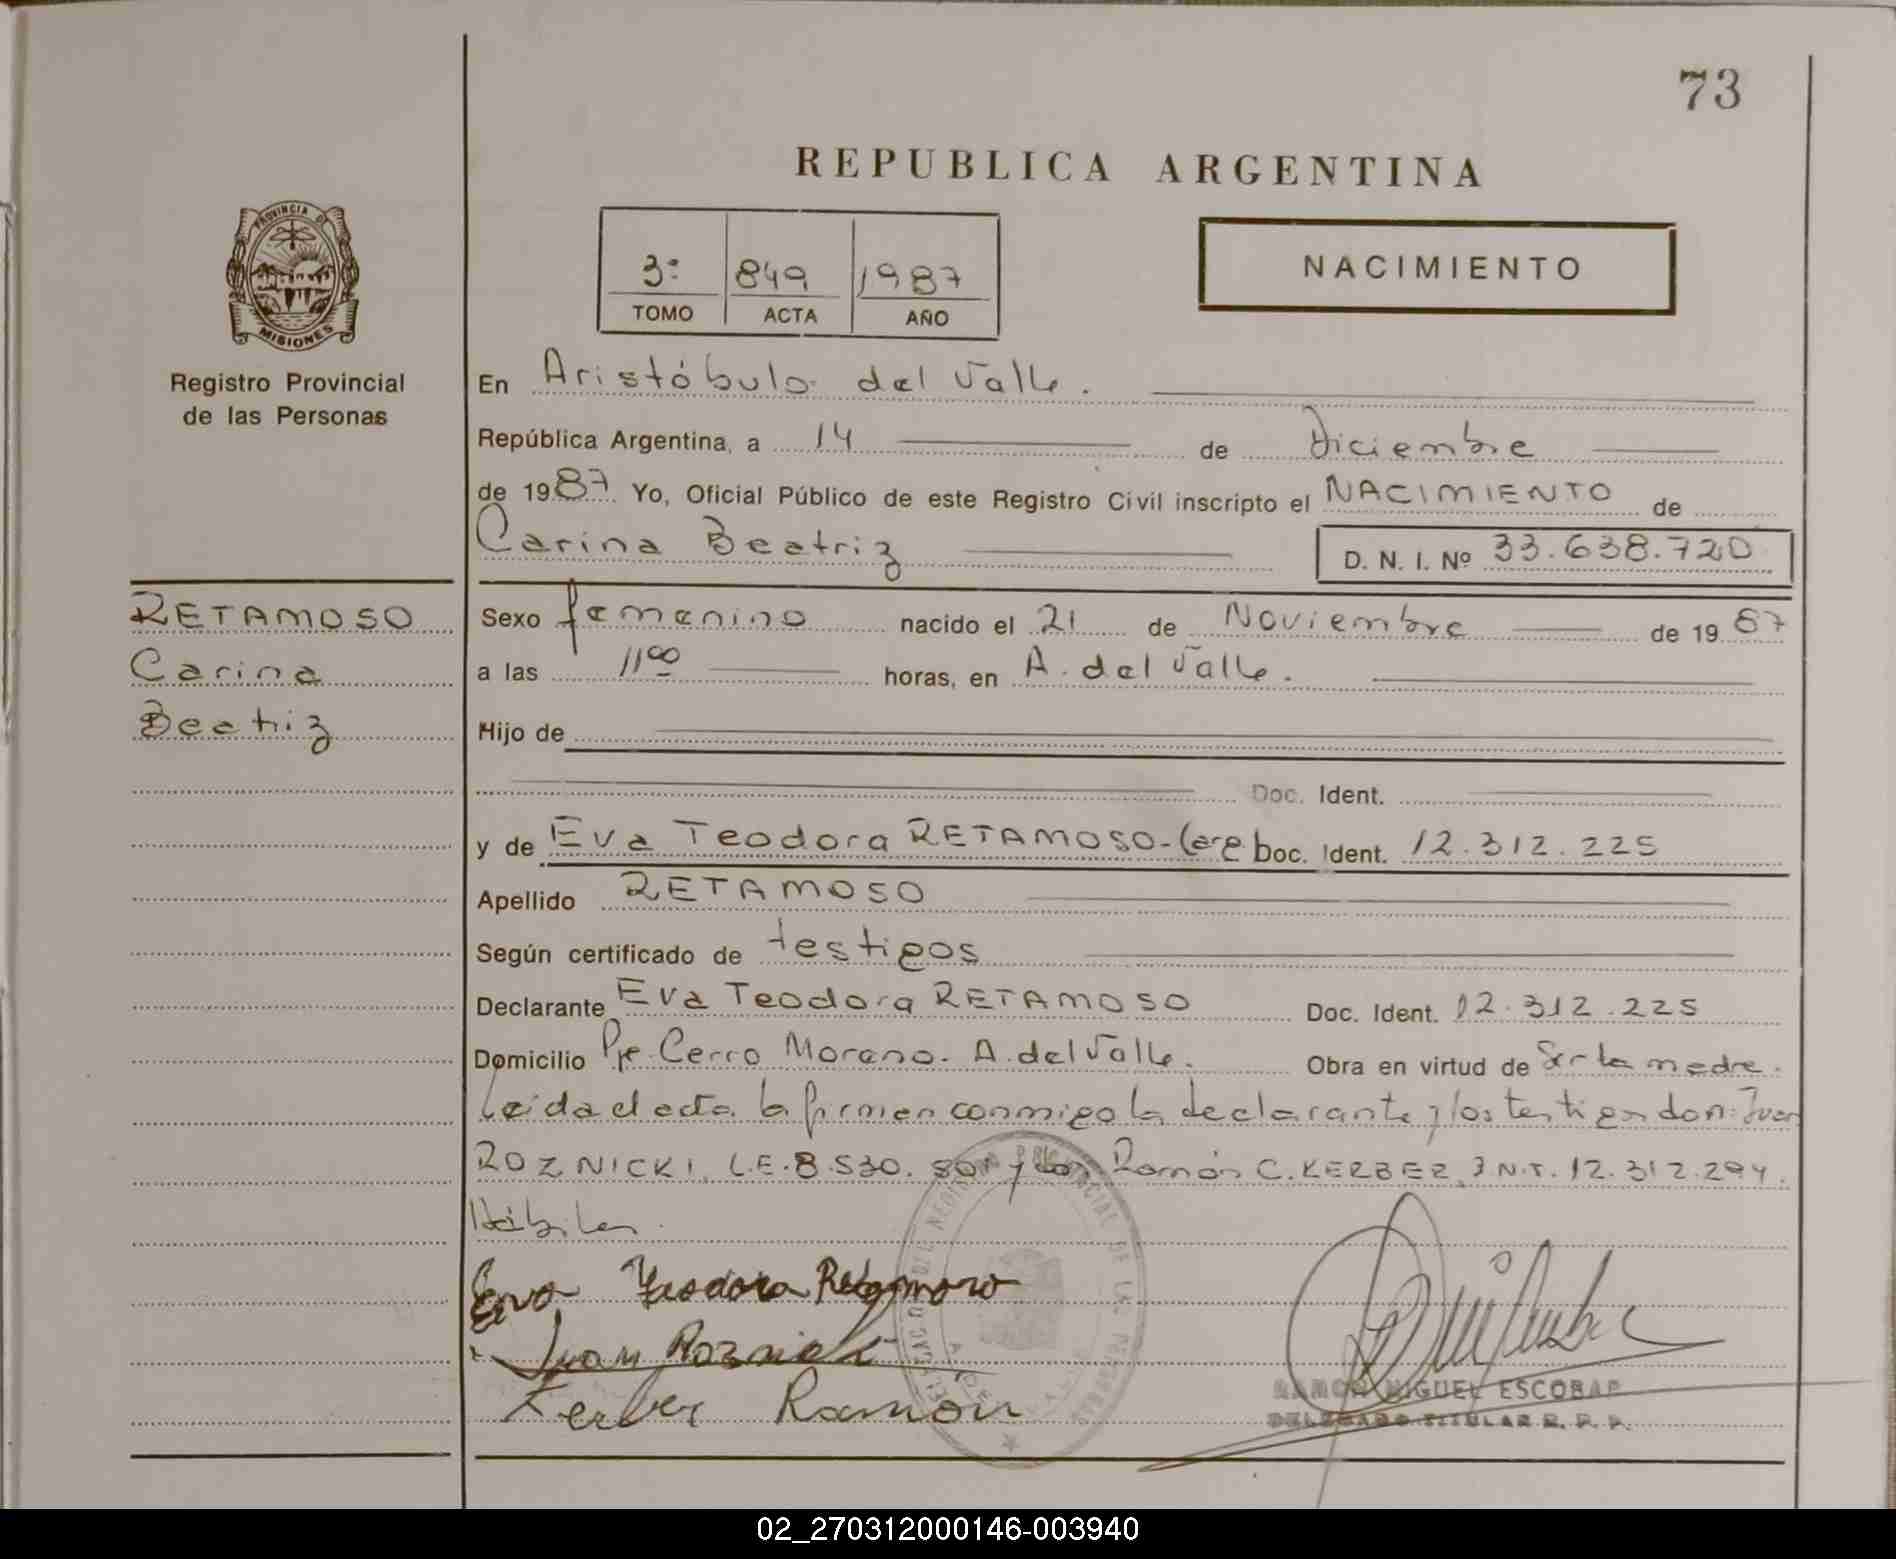 73
REPUBLICA ARGENTINA
PROVINCIA DE
MISIONES
Registro Provincial
de las Personas
3º 849 1987
TOMO ACTA AÑO
NACIMIENTO
En Aristóbulo del Valle.
República Argentina, a 14 de Diciembre
de 1987 Yo, Oficial Público de este Registro Civil inscripto el NACIMIENTO de
Carina Beatriz D. N. I. Nº 33.638.720
RETAMOSO
Carina
Beatriz
Sexo femenino nacido el 21 de Noviembre de 1987
a las 11⁰⁰ horas, en A. del Valle.
Hijo de
Doc. Ident.
y de Eva Teodora RETAMOSO- Doc. Ident. 12.312.225
Apellido RETAMOSO
Según certificado de testigos
Declarante Eva Teodora RETAMOSO Doc. Ident. 12.312.225
Domicilio Pje. Cerro Moreno. A. del Valle. Obra en virtud de Ser la madre.
Leída el acta la firman conmigo la declarante y los testigos don: Juan
ROZNICKI, L.E. 8.530. y don Ramón C. KERBER, D.N.I. 12.312.294.
Hábiles.
Eva Teodora Retamoso
Juan Roznicki
Kerber Ramon
RAMON MIGUEL ESCOBAR
DELEGADO TITULAR R. P. P.
02_270312000146-003940